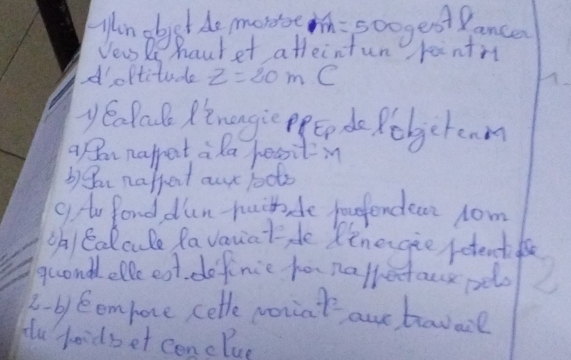 1) Un objet de masse m = 500g est lancer
vers le haut et atteint un point M
d'altitude Z = 20 m C
1) Calcule l'énergie PP Ep de l'objet en M
a) Par rapport à la posit- M
b) Par rapport aux sols
c) Au fond d'un puits de profondeur 10m
2)a) Calcule la variat- de l'énergie potentielle
quand elle est définie par rapport aux sols
2-b) Compare cette variat- aux travail
du poids et conclue